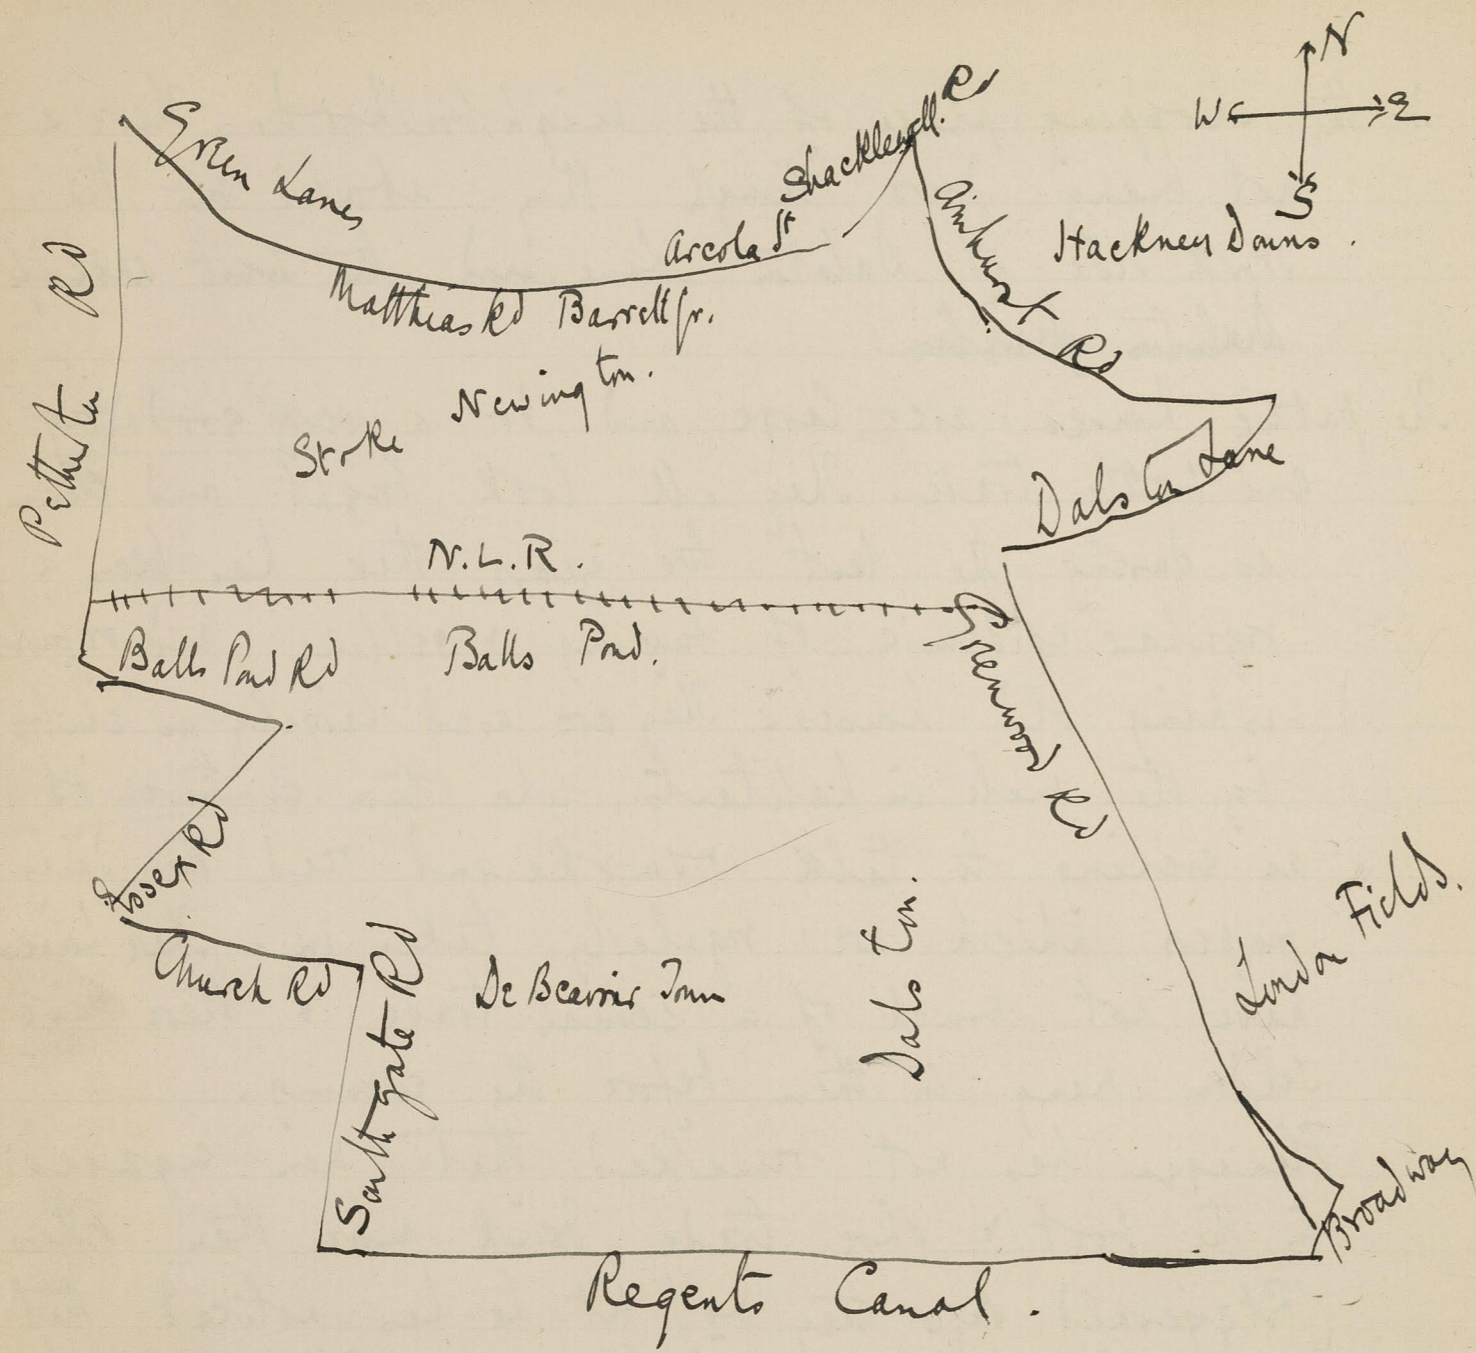 N
W
E
S
Green Lanes
Shacklewell. Rd
Arcola St
Amhurst Rd
Hackney Downs.
Matthias Rd Barrett Gr.
Petherton Rd
Stoke Newington.
Dalston Lane
N.L.R.
Balls Pond Rd
Balls Pond.
Greenwood Rd
Essex Rd
Church Rd
Southgate Rd
De Beavoir Town
Dalston.
London Fields.
Broadway
Regents Canal.